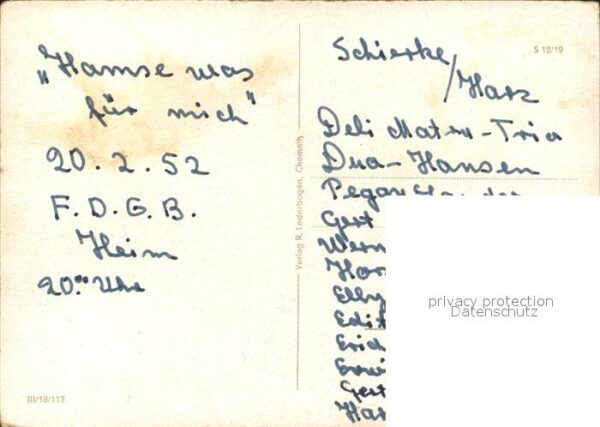 „Hamse was
für mich"
20.2.52
F.D.G.B.
Heim
20.00 Uhr
III/18/117
Verlag R. Lederbogen, Chemnitz
S 12/19
Schierke
/Harz
Trio
Duo-Hansen
Gert
Wern
Har
Elly
Edit
Eric
Erwi
Gert
Har
privacy protection
Datenschutz